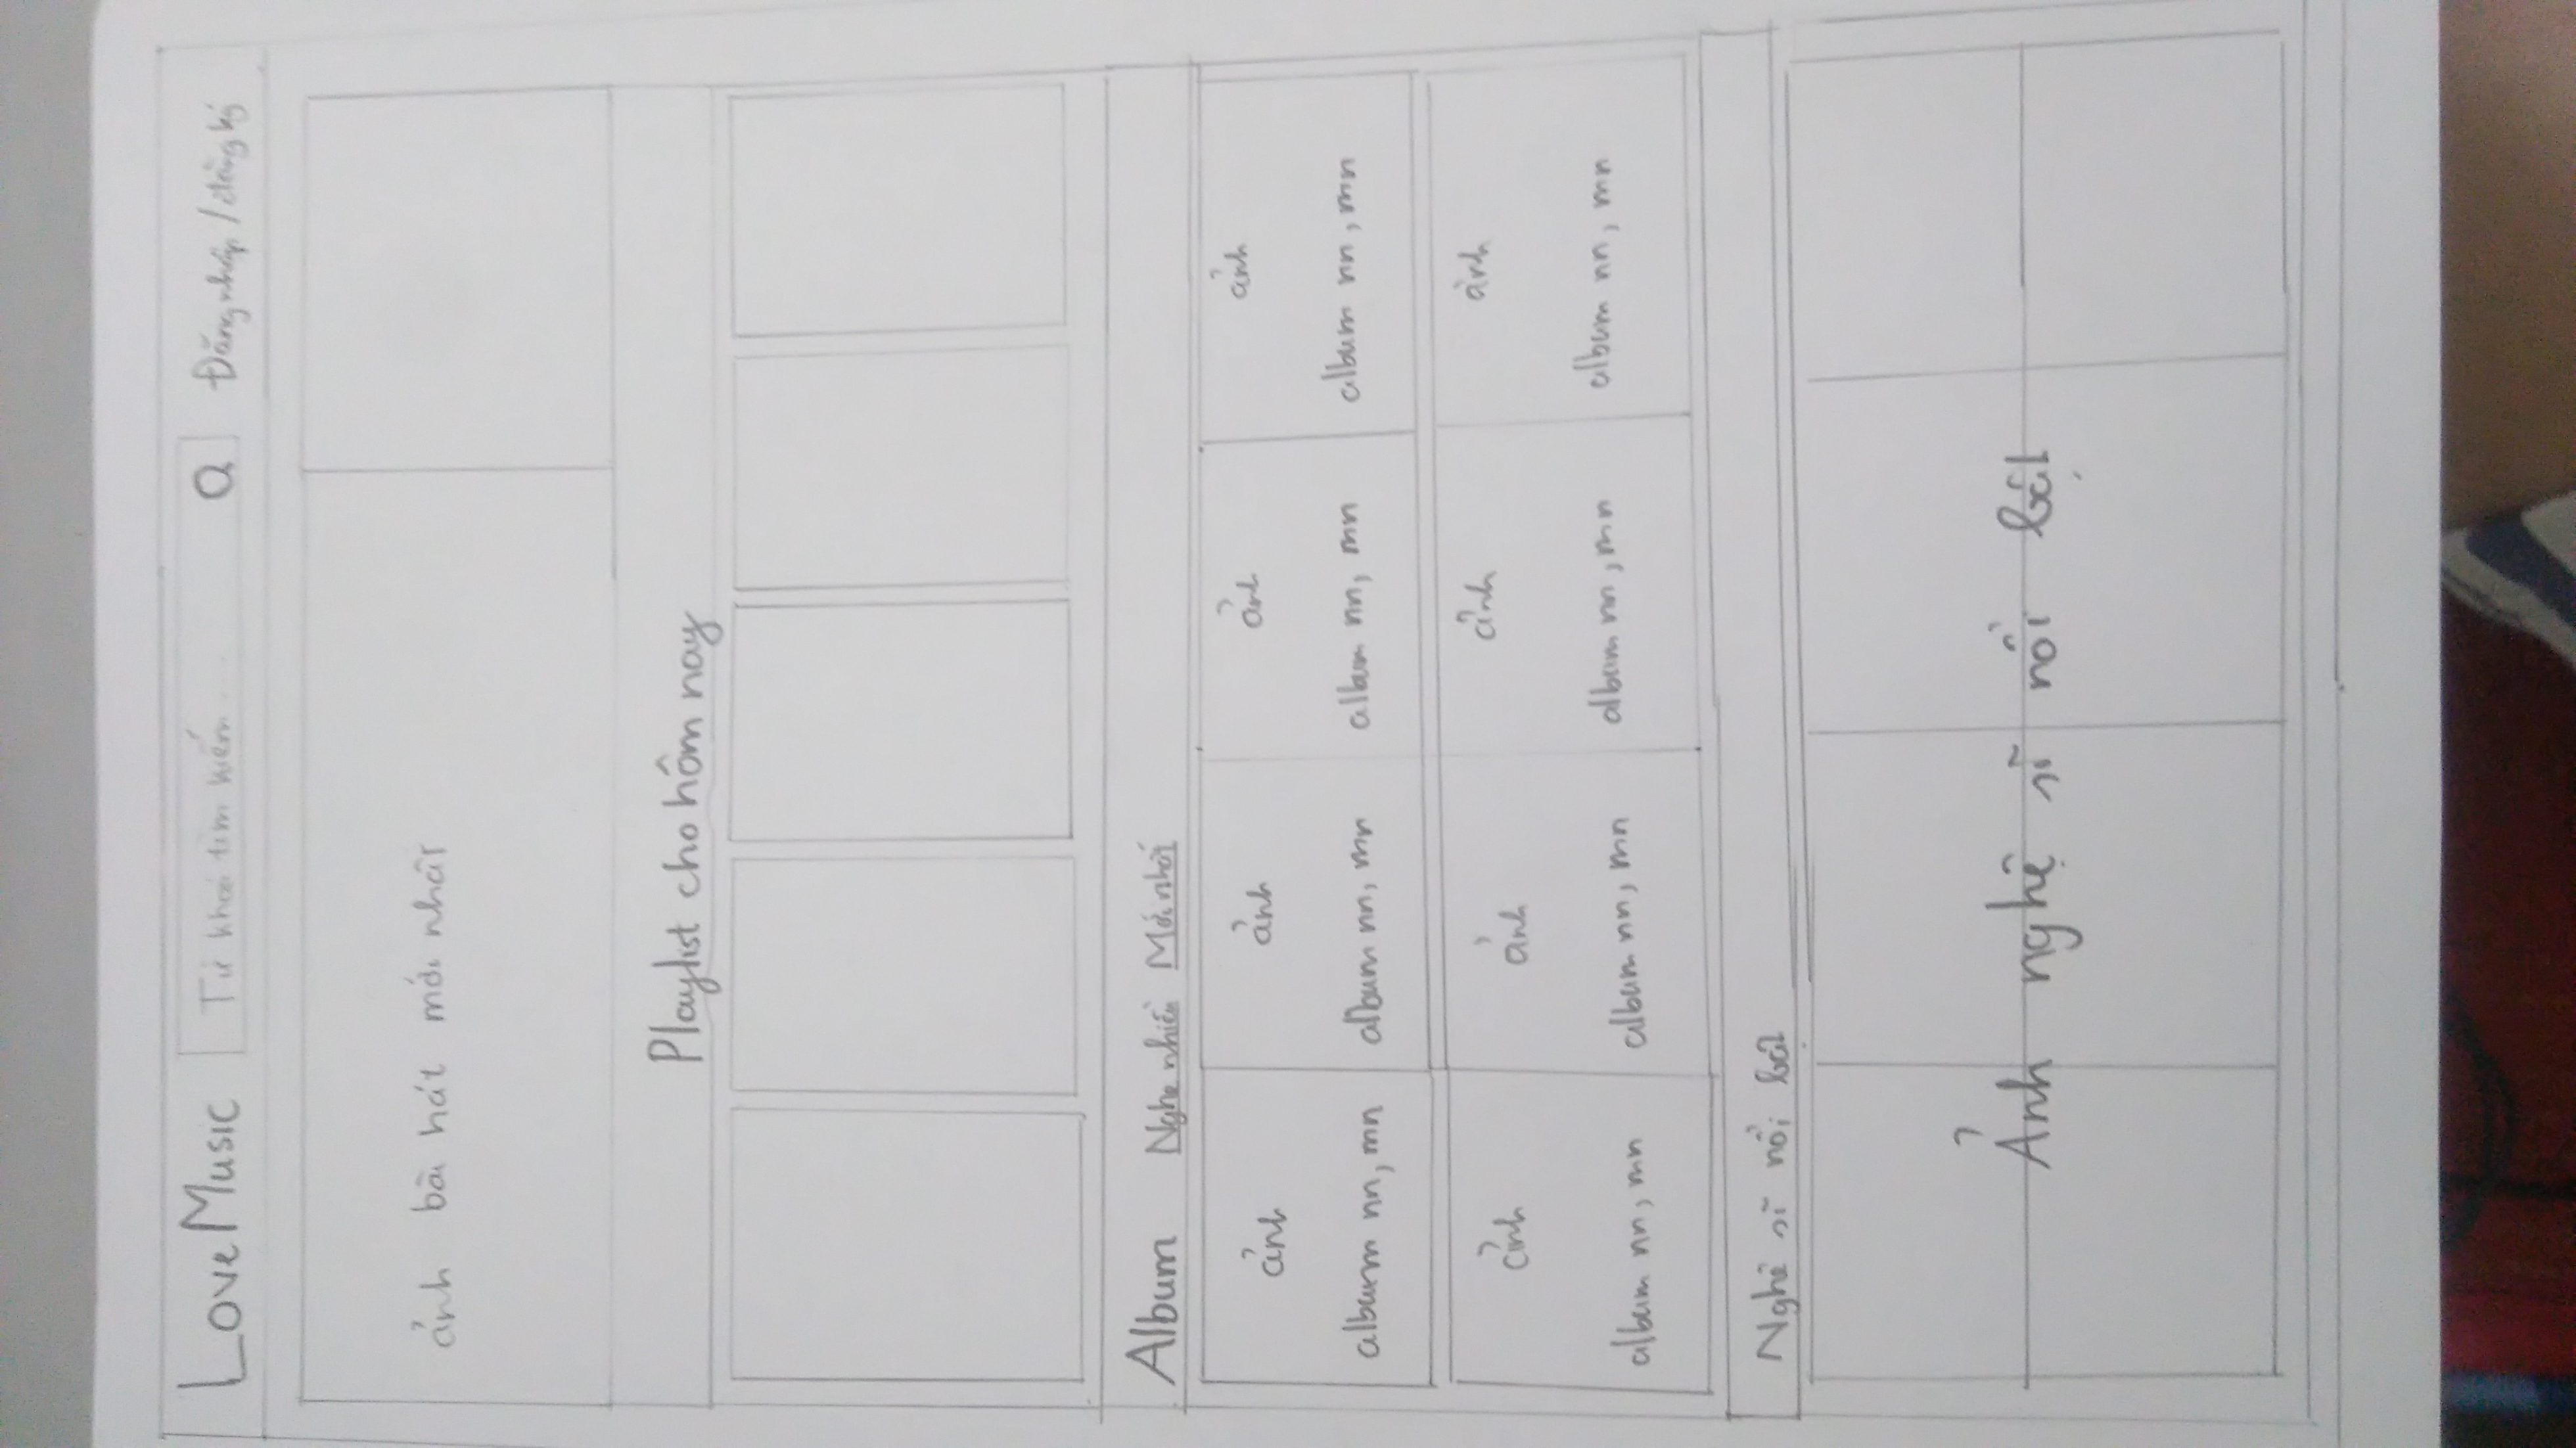 LoveMusic Từ khoá tìm kiếm.... Đăng nhập / đăng ký
ảnh bài hát mới nhất
Playlist cho hôm nay
Album Nghe nhiều Mới nhất
ảnh ảnh ảnh ảnh
album nn, mn album nn, mn album nn, mn album nn, mn
ảnh ảnh ảnh ảnh
album nn, mn album nn, mn album nn, mn album nn, mn
Nghệ sĩ nổi bật
Ảnh nghệ sĩ nổi bật